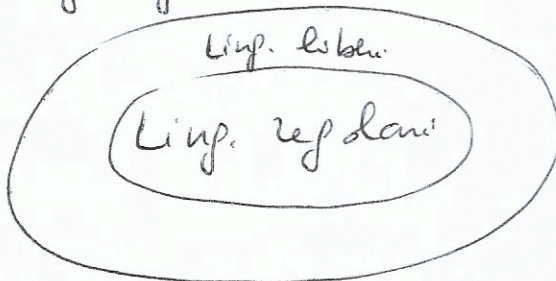 Ling. liberi
Ling. regolari